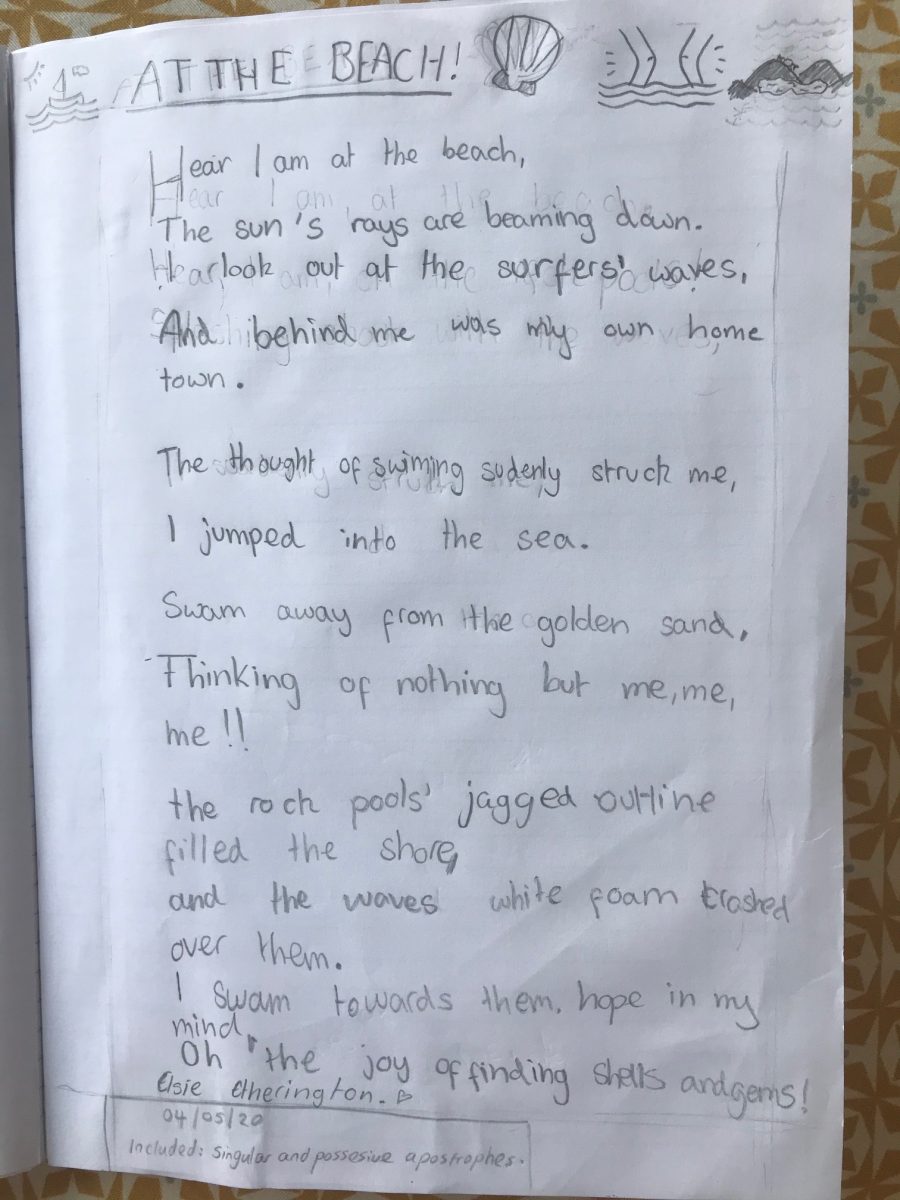 AT THE BEACH!
Hear I am at the beach,
The sun's rays are beaming down.
I look out at the surfers' waves,
And behind me was my own home
town.
The thought of swiming sudenly struck me,
I jumped into the sea.
Swam away from the golden sand,
Thinking of nothing but me, me,
me!!
the rock pools' jagged outline
filled the shore,
and the waves white foam crashed
over them.
I swam towards them, hope in my
mind,
Oh the joy of finding shells and gems!
Elsie Etherington.
04/05/20
Included: singular and possesive apostrophes.